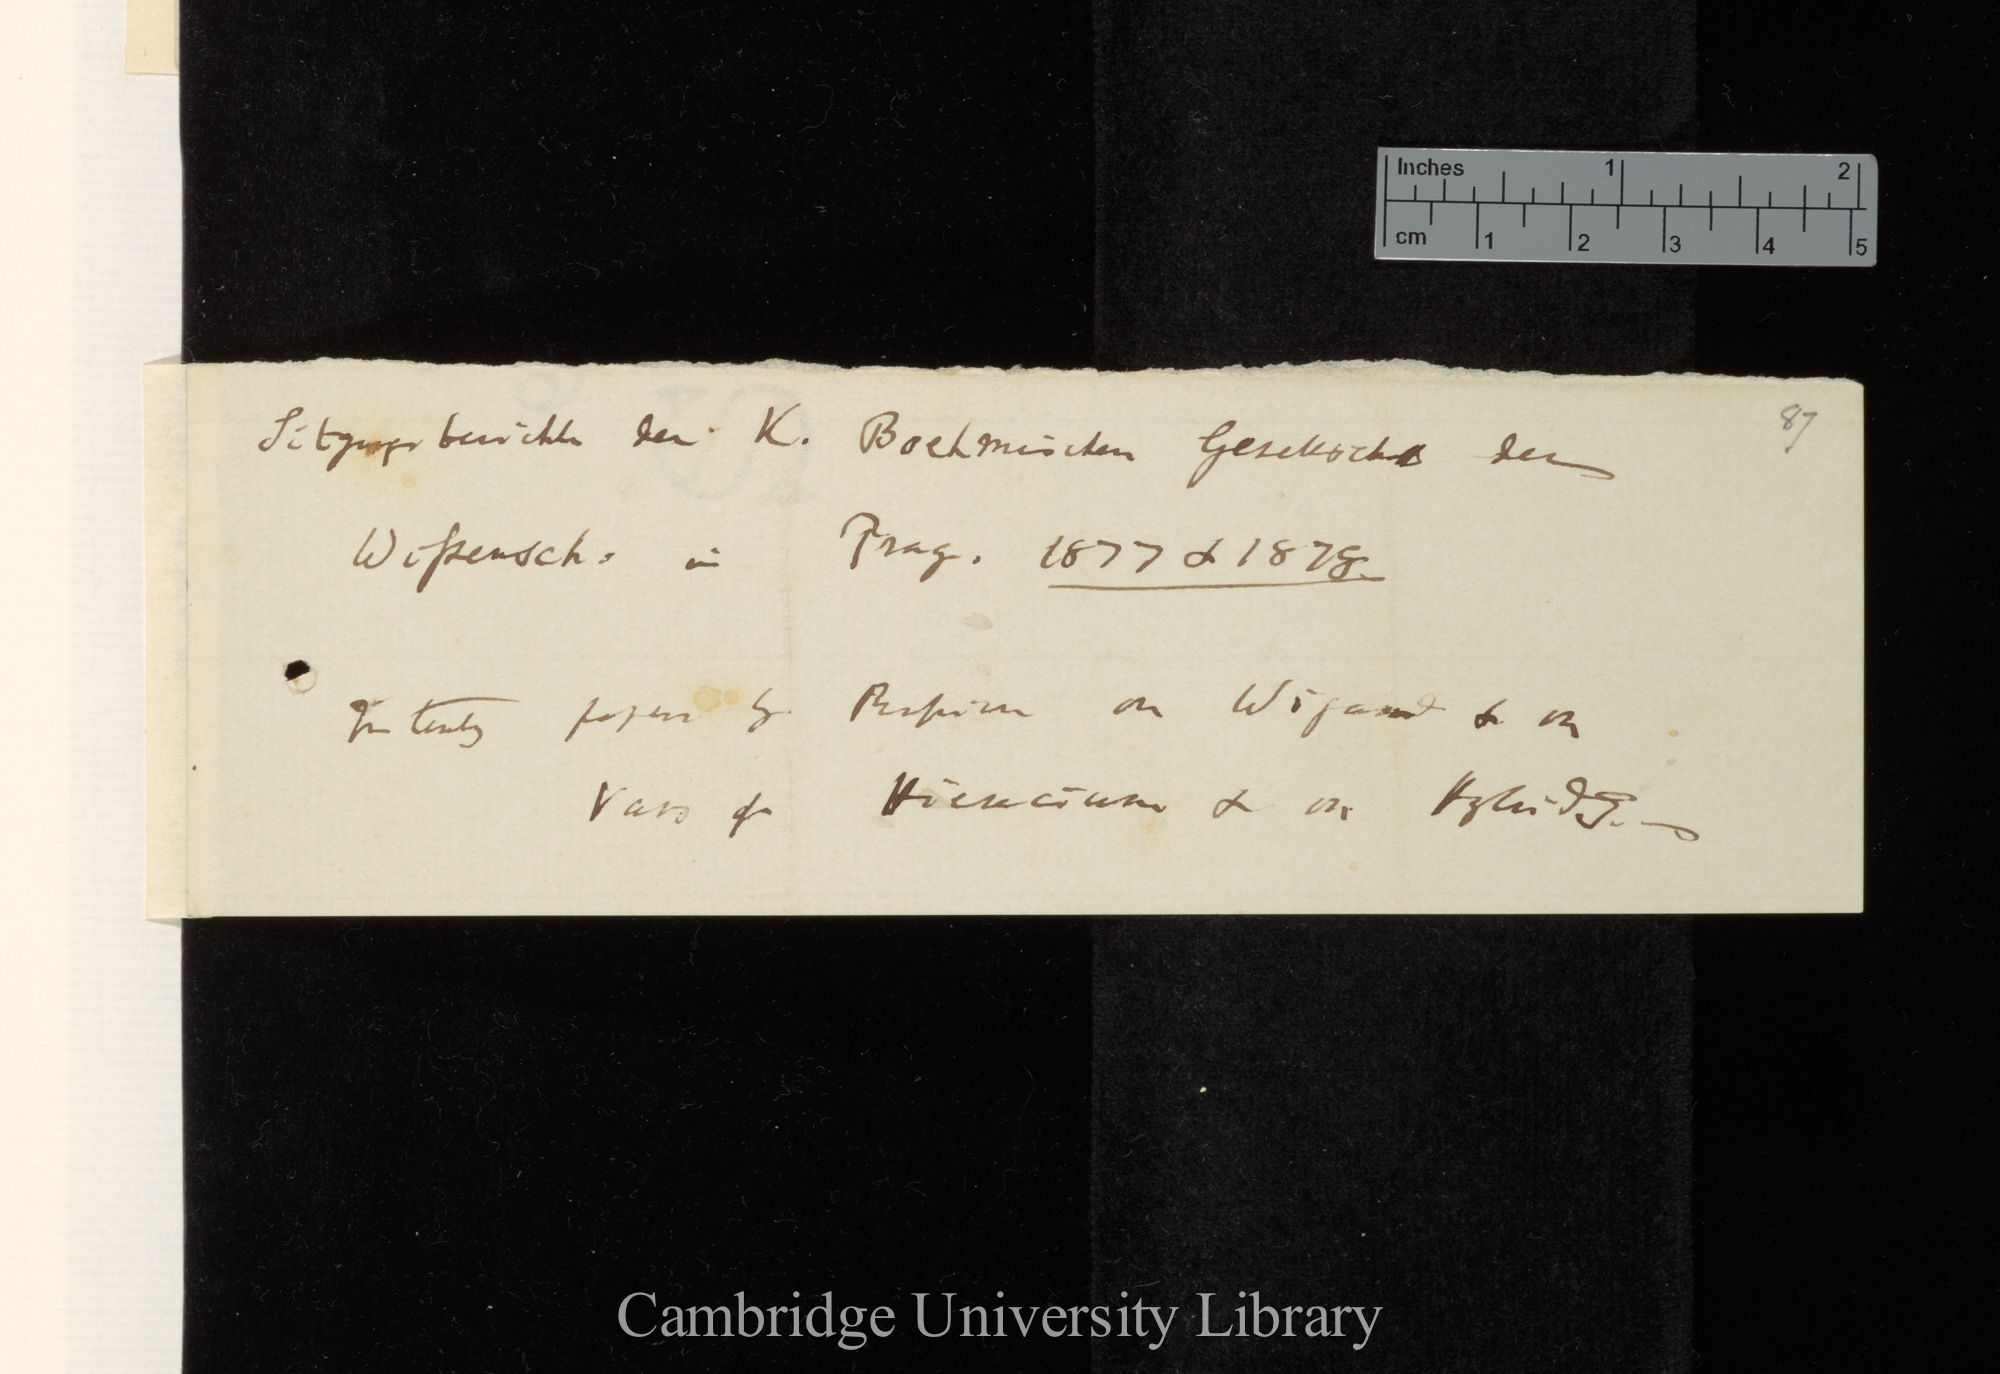 Inches 1 2
cm 1 2 3 4 5
87
Sitzungsberichte der K. Boehmischen Gesellsch der
Wissensch. in Prag. 1877 & 1878.
papers by on Wigand & on
Vars of Hieracium & on Hybrids.
Cambridge University Library